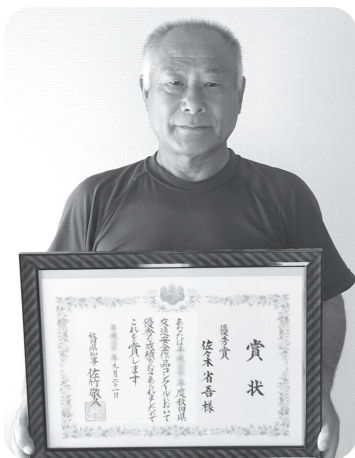 賞状
優秀賞
佐々木省吾 様
あなたは 度秋田県
交通安全作品コンクールにおいて
優秀な成績をおさめられましたので
これを賞します
年九月二十一日
秋田県知事 佐竹敬久